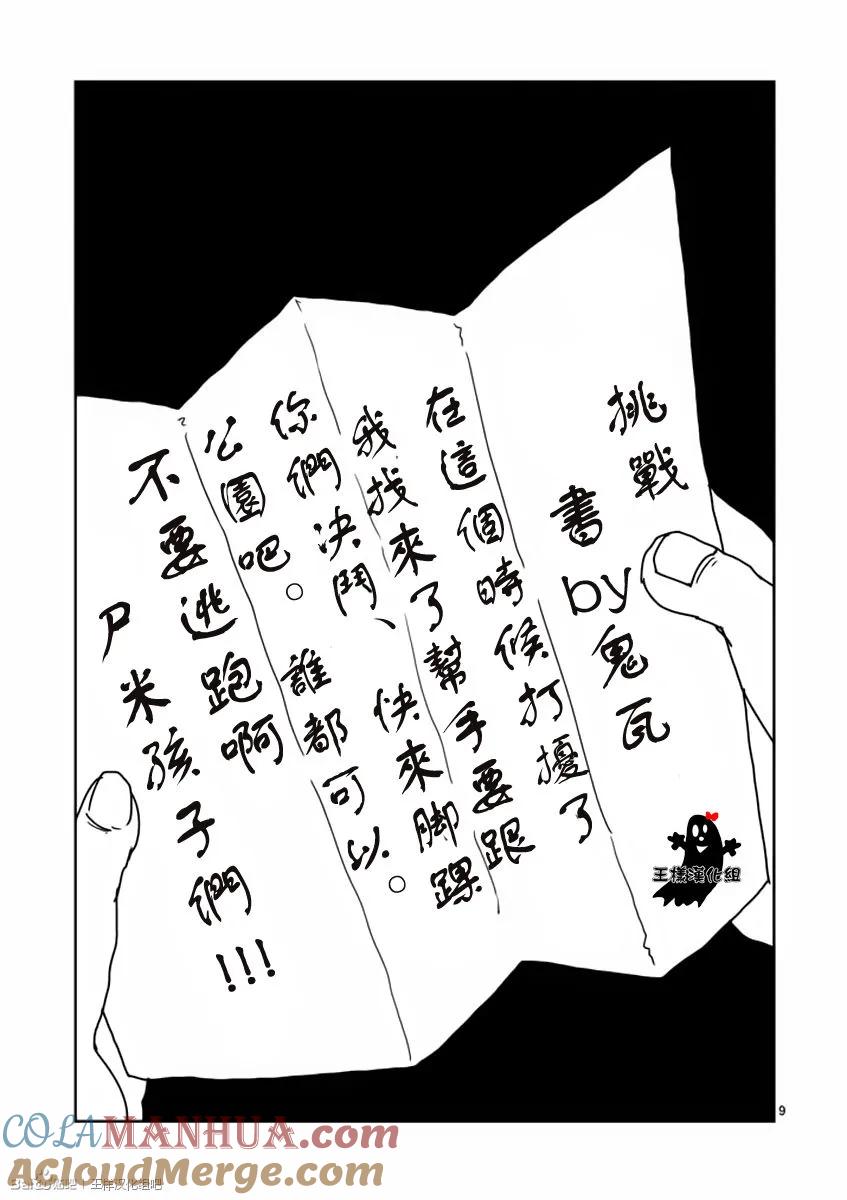 挑戰
書by鬼瓦
在這個時候打擾了
我找來了幫手要跟
你們決鬥、快來脚踝
公園吧。誰都可以。
不要逃跑啊
尸米孩子們!!!
王樣漢化組
9
COLAMANHUA.com
AcloudMerge.com
王样汉化组吧